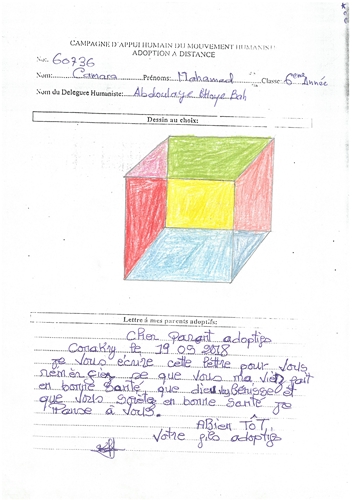 CAMPAGNE D'APPUI HUMAIN DU MOUVEMENT HUMANISTE
ADOPTION A DISTANCE
No: 60736
Nom: Camara Prénoms: Mohamed Classe: 6eme Année
Nom du Delegue Humaniste: Abdoulaye Bah
Dessin au choix:
Lettre à mes parents adoptifs:
Cher parant adoptifs
Conakry le 19 09 2018
je vous écrire cette lettre pour vous
remercier se que vous ma vier fait
en bonne santé, que dieu vous Bénisse et
que vous soyez en bonne santé je
panse à vous.
ABien TÔT,
Votre fils adoptifs